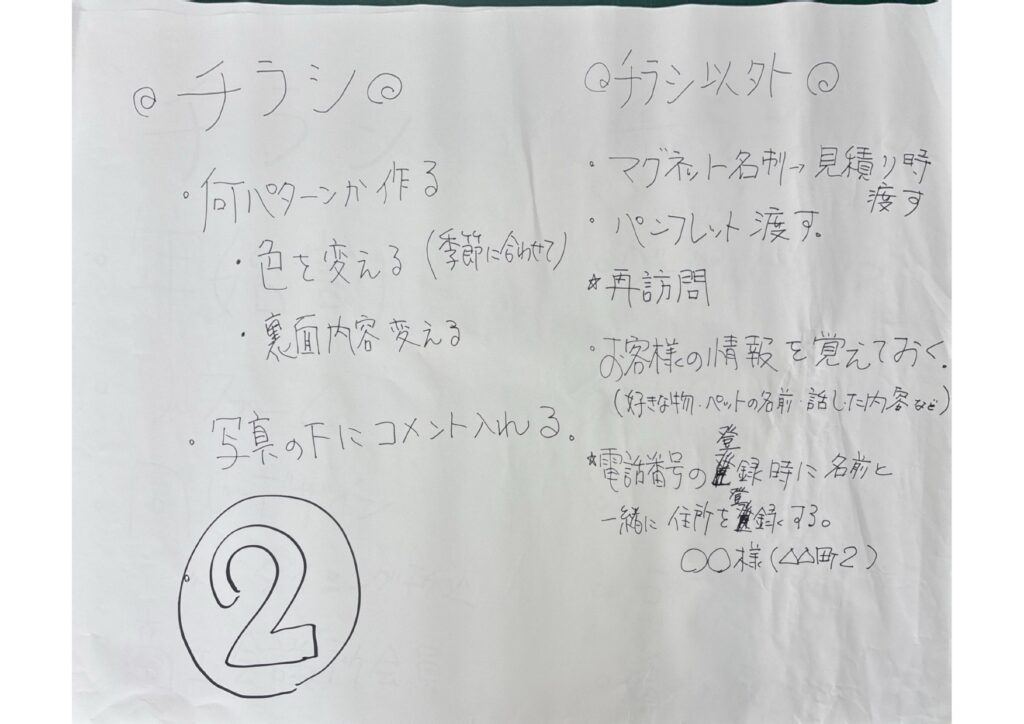 ◎ チラシ ◎
・何パターンか作る
・色を変える (季節に合わせて)
・裏面内容変える
・写真の下にコメント入れる。
②
◎チラシ以外◎
・マグネット名刺→見積り時
渡す
・パンフレット渡す。
☆再訪問
・お客様の情報を覚えておく。
(好きな物・ペットの名前・話した内容など)
☆電話番号の登録時に名前と
一緒に住所を登録する。
〇〇様(△△町2)